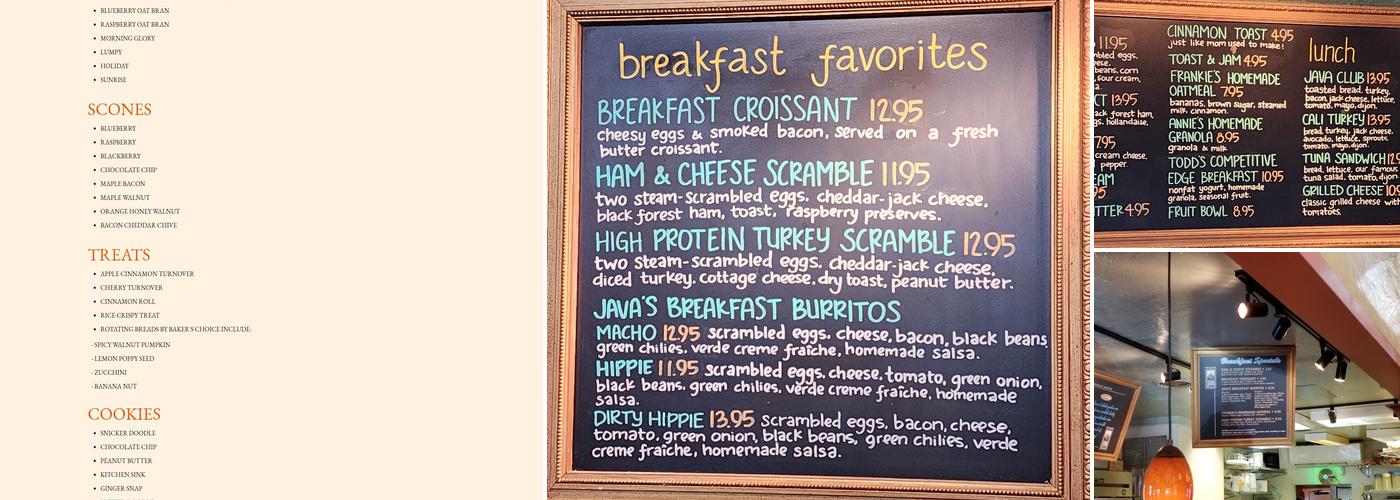 BLUEBERRY OAT BRAN
RASPBERRY OAT BRAN
MORNING GLORY
LUMPY
HOLIDAY
SUNRISE
SCONES
BLUEBERRY
RASPBERRY
BLACKBERRY
CHOCOLATE CHIP
MAPLE BACON
MAPLE WALNUT
ORANGE HONEY WALNUT
BACON CHEDDAR CHIVE
TREATS
APPLE CINNAMON TURNOVER
CHERRY TURNOVER
CINNAMON ROLL
RICE CRISPY TREAT
ROTATING BREADS BY BAKER'S CHOICE INCLUDE:
- SPICY WALNUT PUMPKIN
- LEMON POPPY SEED
- ZUCCHINI
- BANANA NUT
COOKIES
SNICKER DOODLE
CHOCOLATE CHIP
PEANUT BUTTER
KITCHEN SINK
GINGER SNAP
breakfast favorites
BREAKFAST CROISSANT 12.95
cheesy eggs & smoked bacon, served on a fresh
butter croissant.
HAM & CHEESE SCRAMBLE 11.95
two steam-scrambled eggs, cheddar-jack cheese,
black forest ham, toast, raspberry preserves.
HIGH PROTEIN TURKEY SCRAMBLE 12.95
two steam-scrambled eggs, cheddar-jack cheese,
diced turkey, cottage cheese, dry toast, peanut butter.
JAVA'S BREAKFAST BURRITOS
MACHO 12.95 scrambled eggs, cheese, bacon, black beans,
green chilies, verde creme fraîche, homemade salsa.
HIPPIE 11.95 scrambled eggs, cheese, tomato, green onion,
black beans, green chilies, verde creme fraîche, homemade
salsa.
DIRTY HIPPIE 13.95 scrambled eggs, bacon, cheese,
tomato, green onion, black beans, green chilies, verde
creme fraîche, homemade salsa.
11.95
eggs,
beans, corn
sour cream,
13.95
forest ham,
hollandaise,
7.95
cream cheese,
pepper.
4.95
CINNAMON TOAST 4.95
just like mom used to make!
TOAST & JAM 4.95
FRANKIE'S HOMEMADE
OATMEAL 7.95
bananas, brown sugar, steamed
milk, cinnamon.
ANNIE'S HOMEMADE
GRANOLA 8.95
granola & milk
TODD'S COMPETITIVE
EDGE BREAKFAST 10.95
nonfat yogurt, homemade
granola, seasonal fruit.
FRUIT BOWL 8.95
lunch
JAVA CLUB 13.95
toasted bread, turkey,
bacon, jack cheese, lettuce,
tomato, mayo, dijon.
CALI TURKEY 13.95
bread, turkey, jack cheese,
avocado, lettuce, sprouts,
tomato, mayo, dijon.
TUNA SANDWICH
bread, lettuce, our famous
tuna salad, tomato, dijon
GRILLED CHEESE
classic grilled cheese with
tomatoes.
Breakfast Specials